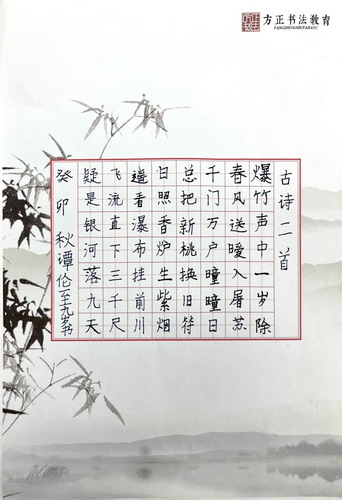 方正书法教育
FANGZHENGSHUFAJIAOYU
古诗二首
爆竹声中一岁除
春风送暖入屠苏
千门万户曈曈日
总把新桃换旧符
日照香炉生紫烟
遥看瀑布挂前川
飞流直下三千尺
疑是银河落九天
癸卯 秋谭伦至九岁书